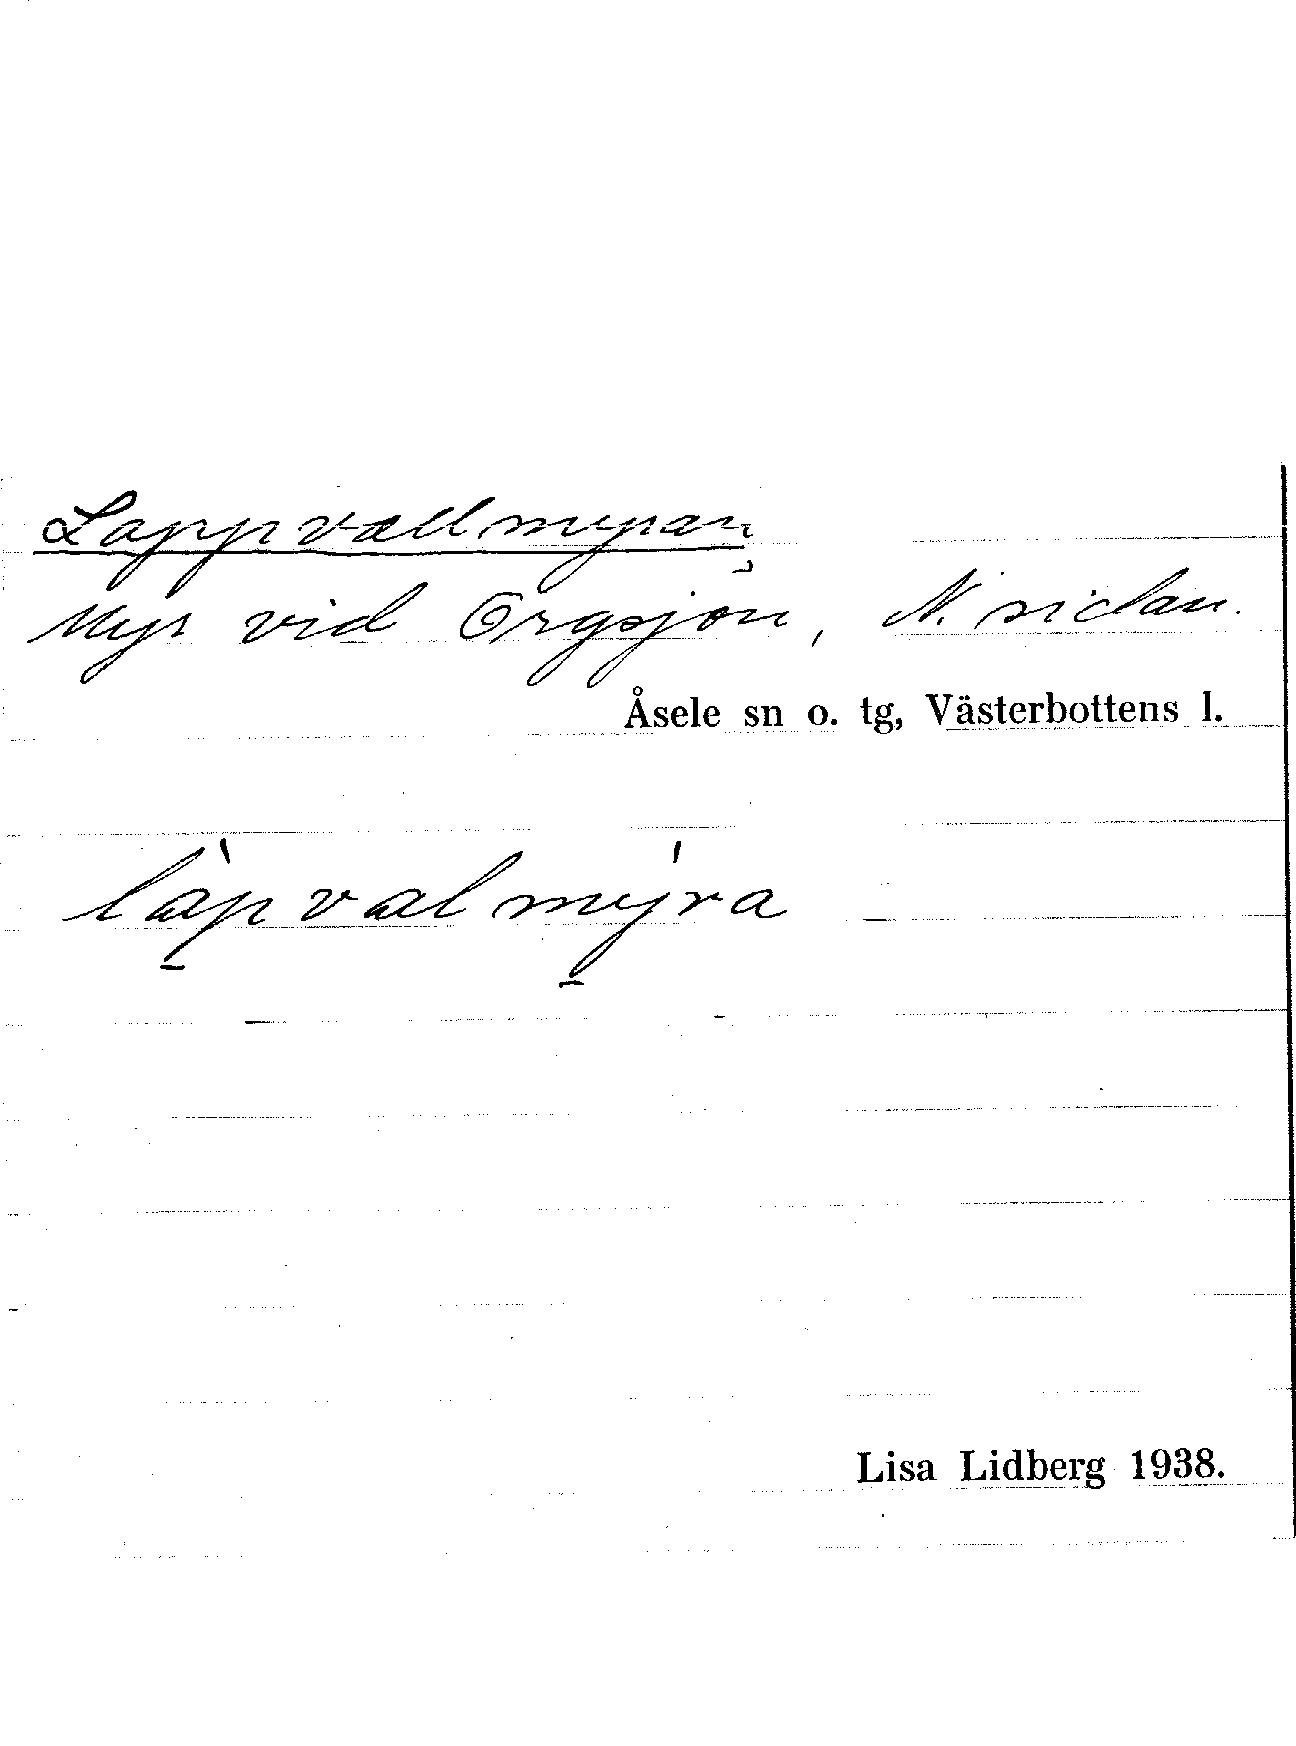 Lappvallmyran
Myr vid Orgsjön, N. sidan.
Åsele sn o. tg, Västerbottens l.
làp̱valmý̱ra
Lisa Lidberg 1938.